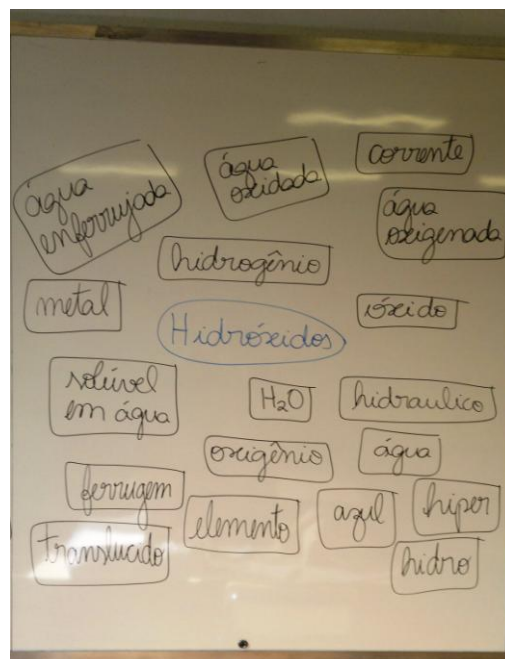 corrente
água
oxidada
água
enferrujada
água
oxigenada
hidrogênio
metal
óxido
Hidróxidos
solúvel
em água
H₂O
hidraulico
oxigênio
água
ferrugem
elemento
azul
hiper
translucido
hidro